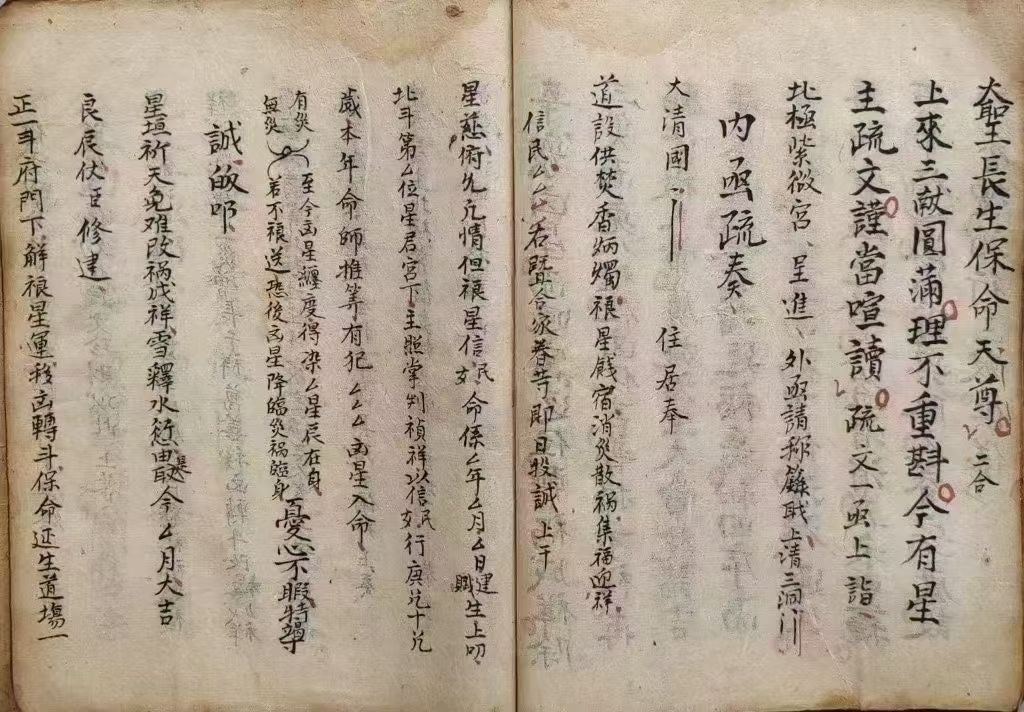 大聖長生保命天尊 二合
上來三献圓滿理不重斟今有星
主疏文謹當喧讀 疏文一函上詣
北極紫微宮、呈進、外函請称錄職上清三洞
内函疏奏
大清國 住居奉
道設供焚香炳燭禳星餞宿消災散禍集福迎祥
信民厶厶右暨合家眷等即日投誠上干
星慈俯允凡情但禳星信民女命係厶年厶月厶日建生上叨
北斗第厶位星君宮下主照掌判禎祥以信民女行庚几十几
歲本年命師推筭有犯厶厶凶星入命
有災 至今凶星纏度得染厶星辰在身
無災 若不禳送恐後凶星降臨災禍臨身 憂心不暇特尊
誠皈叩
星垣祈天免难改禍成祥雪釋氷 由是取今厶月大吉
良辰伏臣修建
正一斗府門下解禳星運移凶轉斗保命延生道塲一